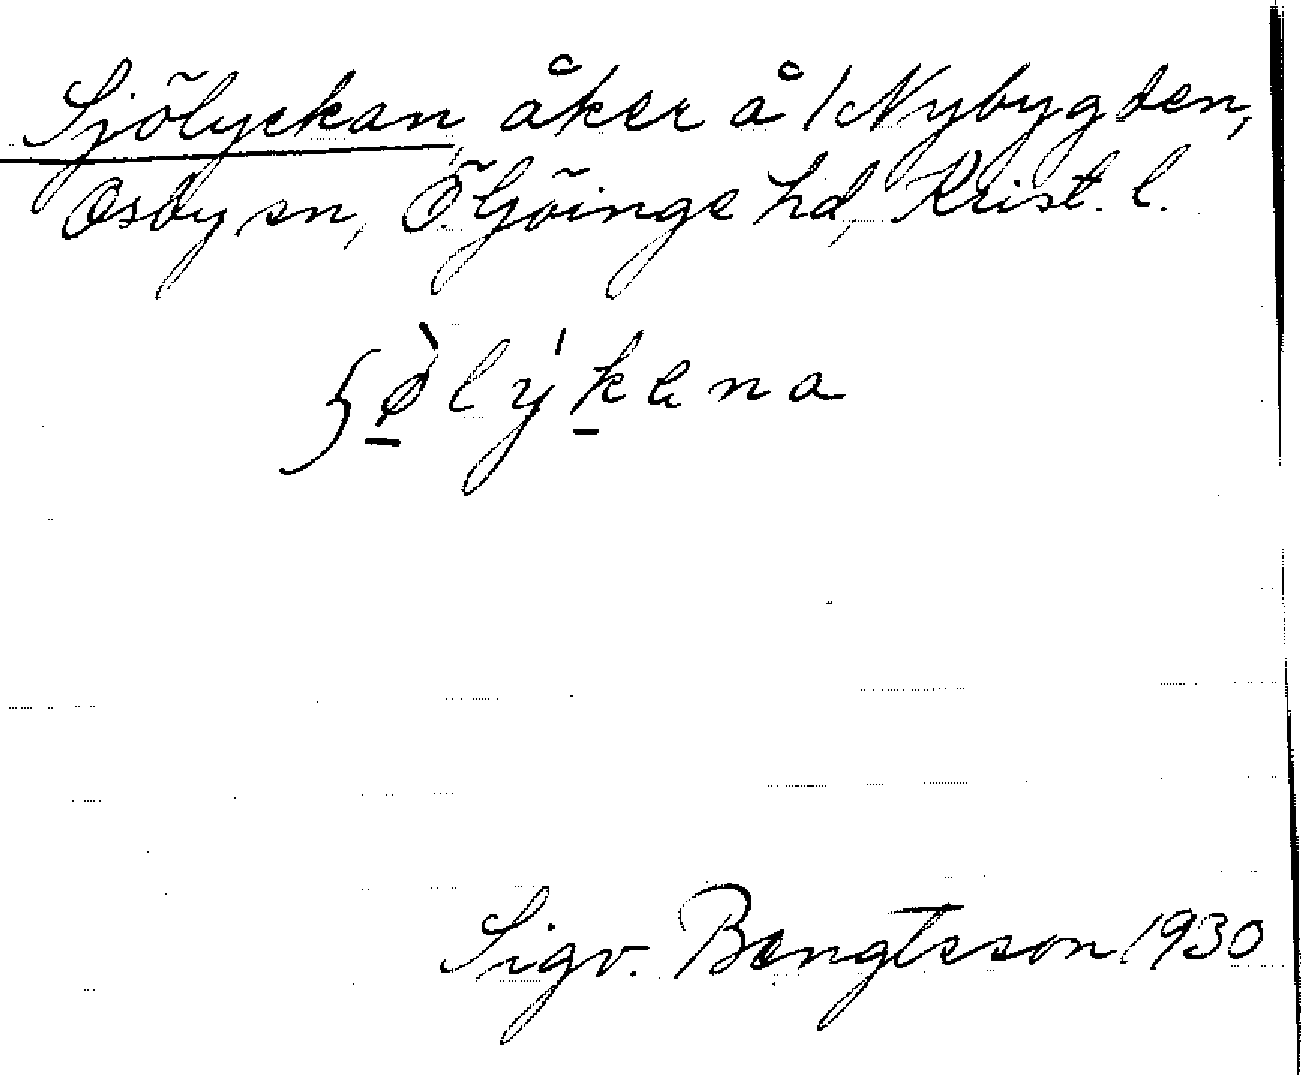 Sjölyckan, åker å 1 Nybygden,
Osby sn, Ö. Göinge hd, Krist. l.
Sigv. Bengtsson 1930